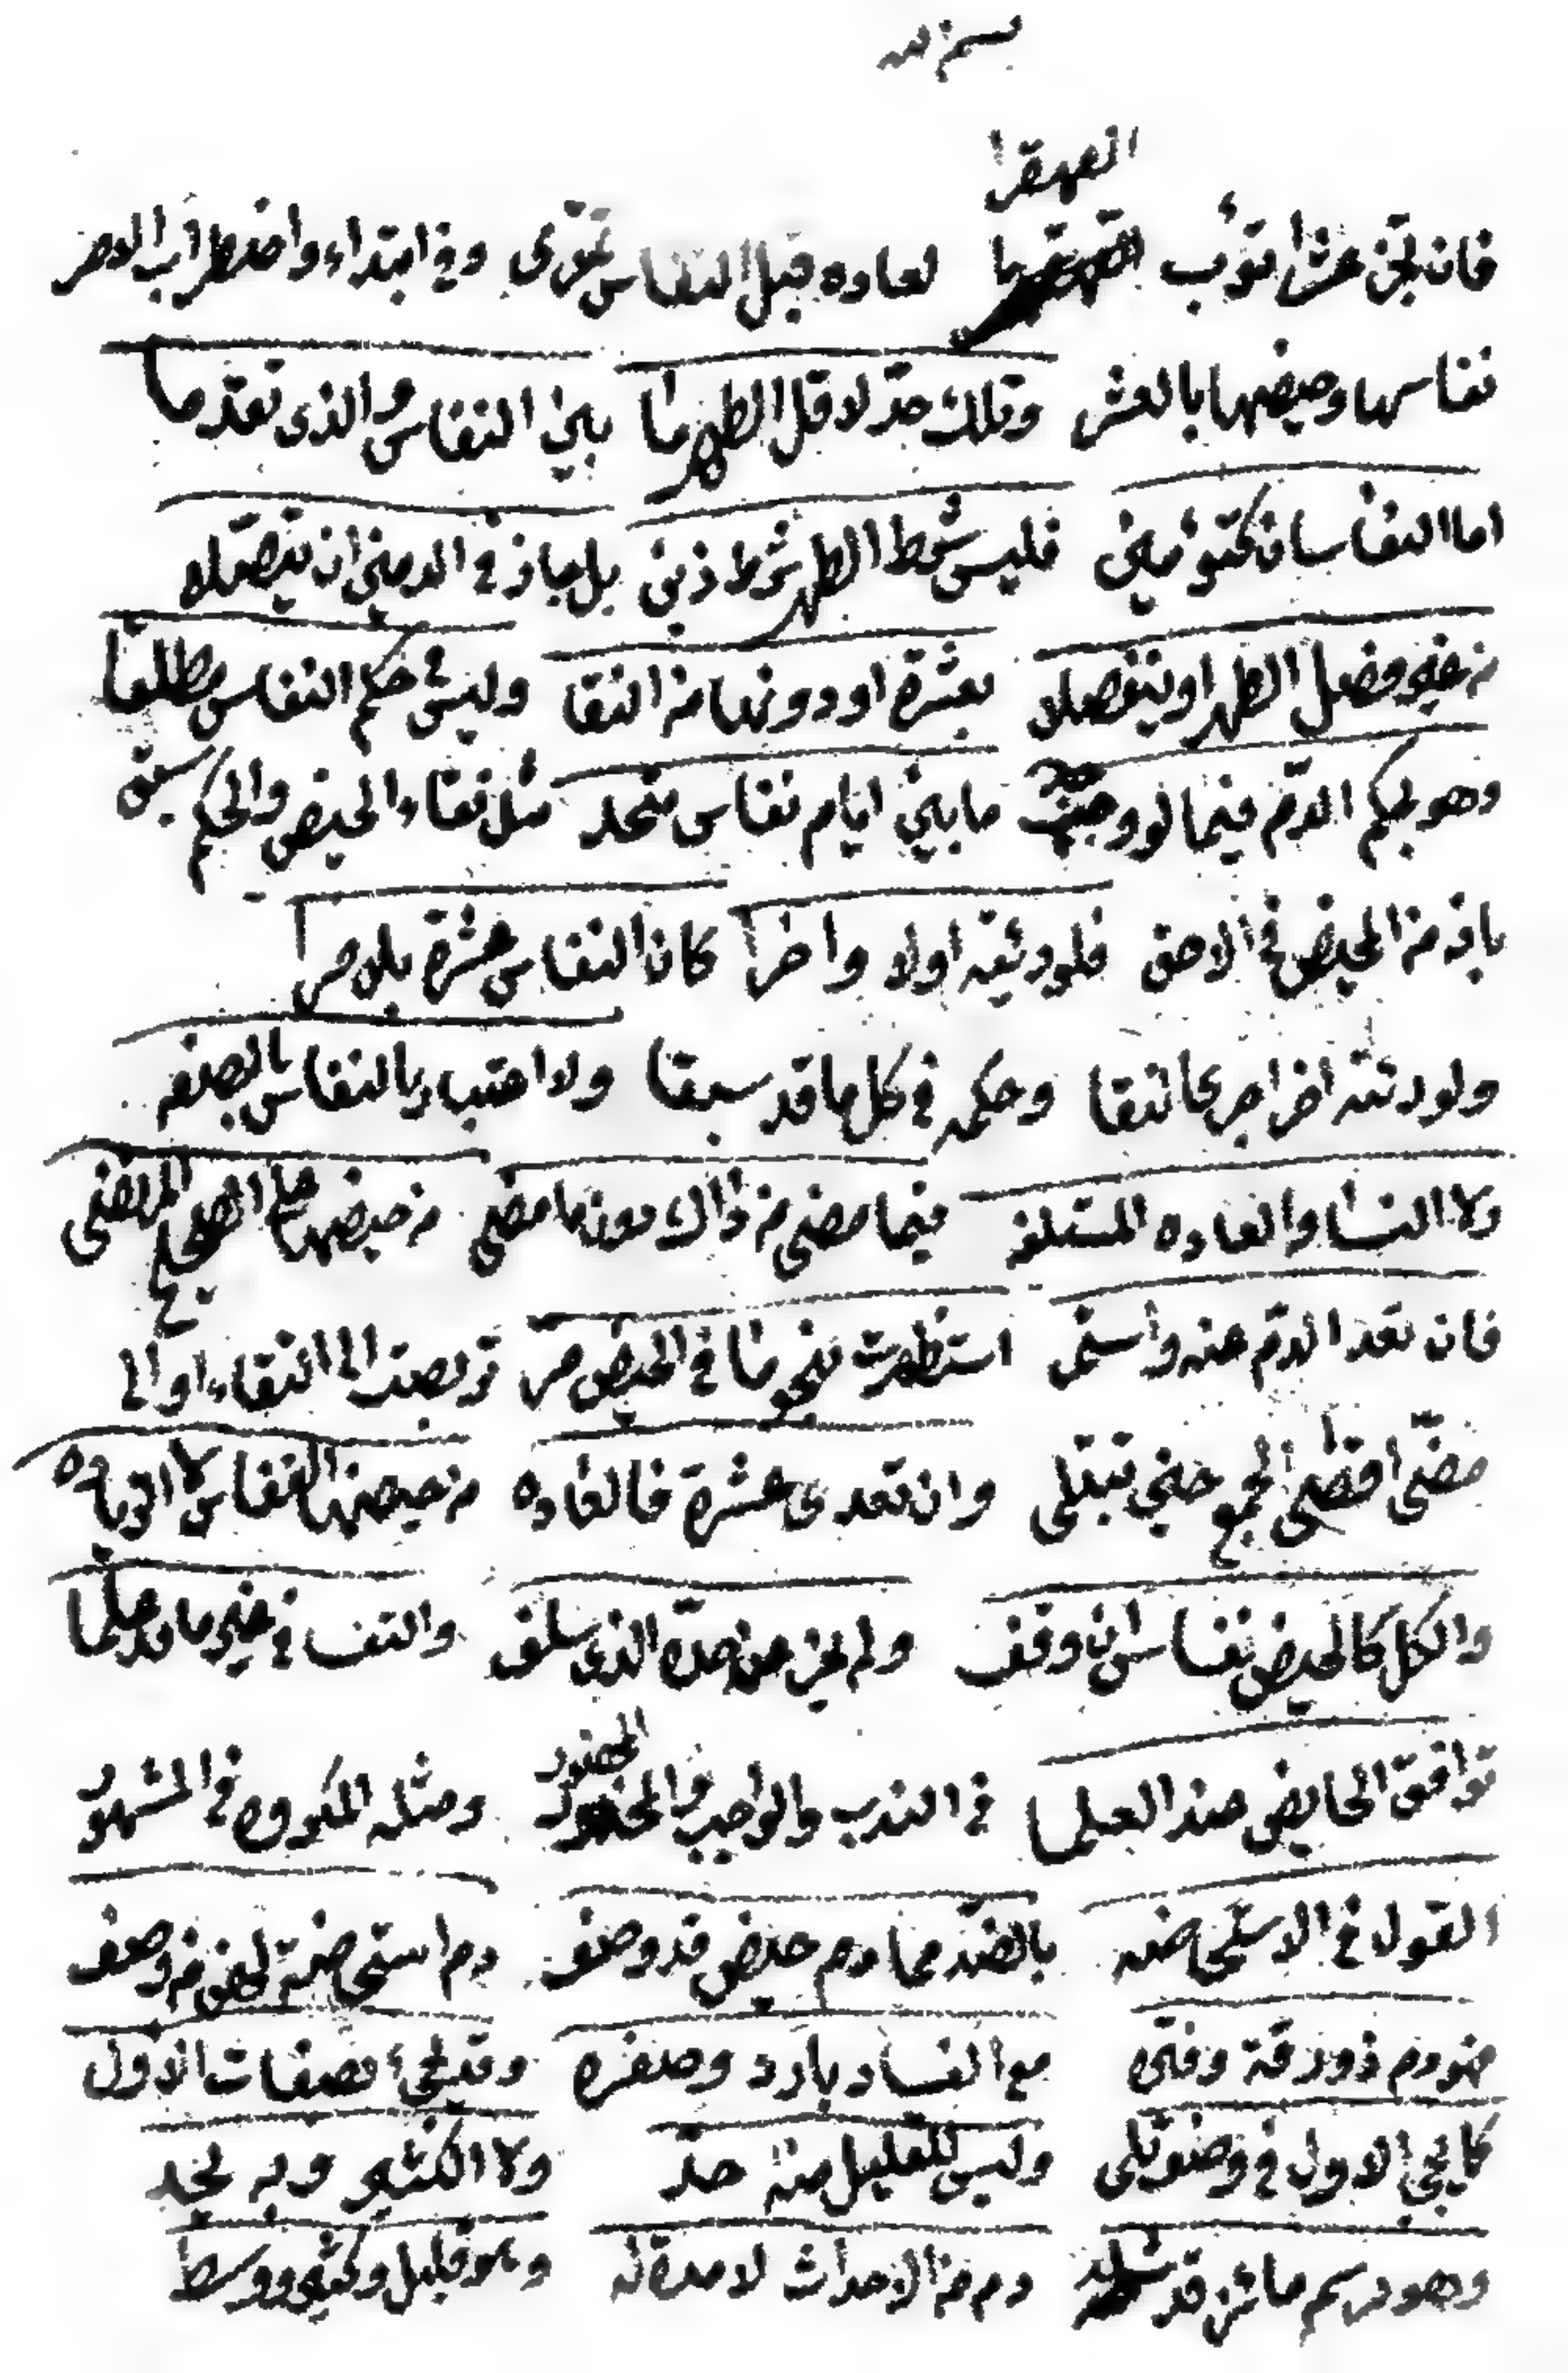 بسم الله
القهقرا
فان تجز عشرا تؤب لعاده قبل النفاس تقوى وفي ابتداء واضطراب الامر
نفاسها وحيضها بالعشر وتلك حد لاقل الطهر ما بين النفاس والذي تقدما
اما النفاسان كتوأمين فليس شرط الطهر شرط ذين بل جاز في الدمين ان يتصلا
من غير فصل الطهر او ينفصلا بعشرة او دونها من النقا وليس في حكم النفاس مطلقا
وهو بحكم الدم فيما لو وجد ما بين ايام نفاس متحد مثل نقاء الحيض والحكم سبق
بانه من المحيض في الاحق فلو رئته اولا واخرا كان النفاس عشرة بلا مرا
ولو رئته اخرا جرى النقا وحكمه في كل ما قد سبقا ولا اعتبار بالنفاس بالصفه
ولا النسا والعاده المستلفه فيما مضى من ذاك دون ما مضى من حيضها على المرتضى
فان تعد الدم عنه واستمر استظهرت بنحو ما في الحيض مر تربصت الى النقاء او الى
مضي اقصى الجمع حين تبتلى وان تعدى عشرة فالعاده من حيضها النفاس لا الزياده
والكل كالحيض نفاس ان وقف ولم يجز عن حده الذي سلف والنفسا في غير ما قد علما
توافق الحايض عند العلما في الندب والواجب والمحضور ومثله المكروه في المشهور
القول في الاستحاضه بالضد مما دم حيض قد وصف دم استحاضة لمن وصف
فهو دم ذو رقة وفتره مع الفساد بارد وصفره وقد يجيء بصفات الاول
كما يجي الاول في وصف يلي وليس للقليل منه حد ولا الكثير وبه يحد
وهو درسم مائز قد دم من الاحداث لا مدة له وهو قليل وكثير ووسط